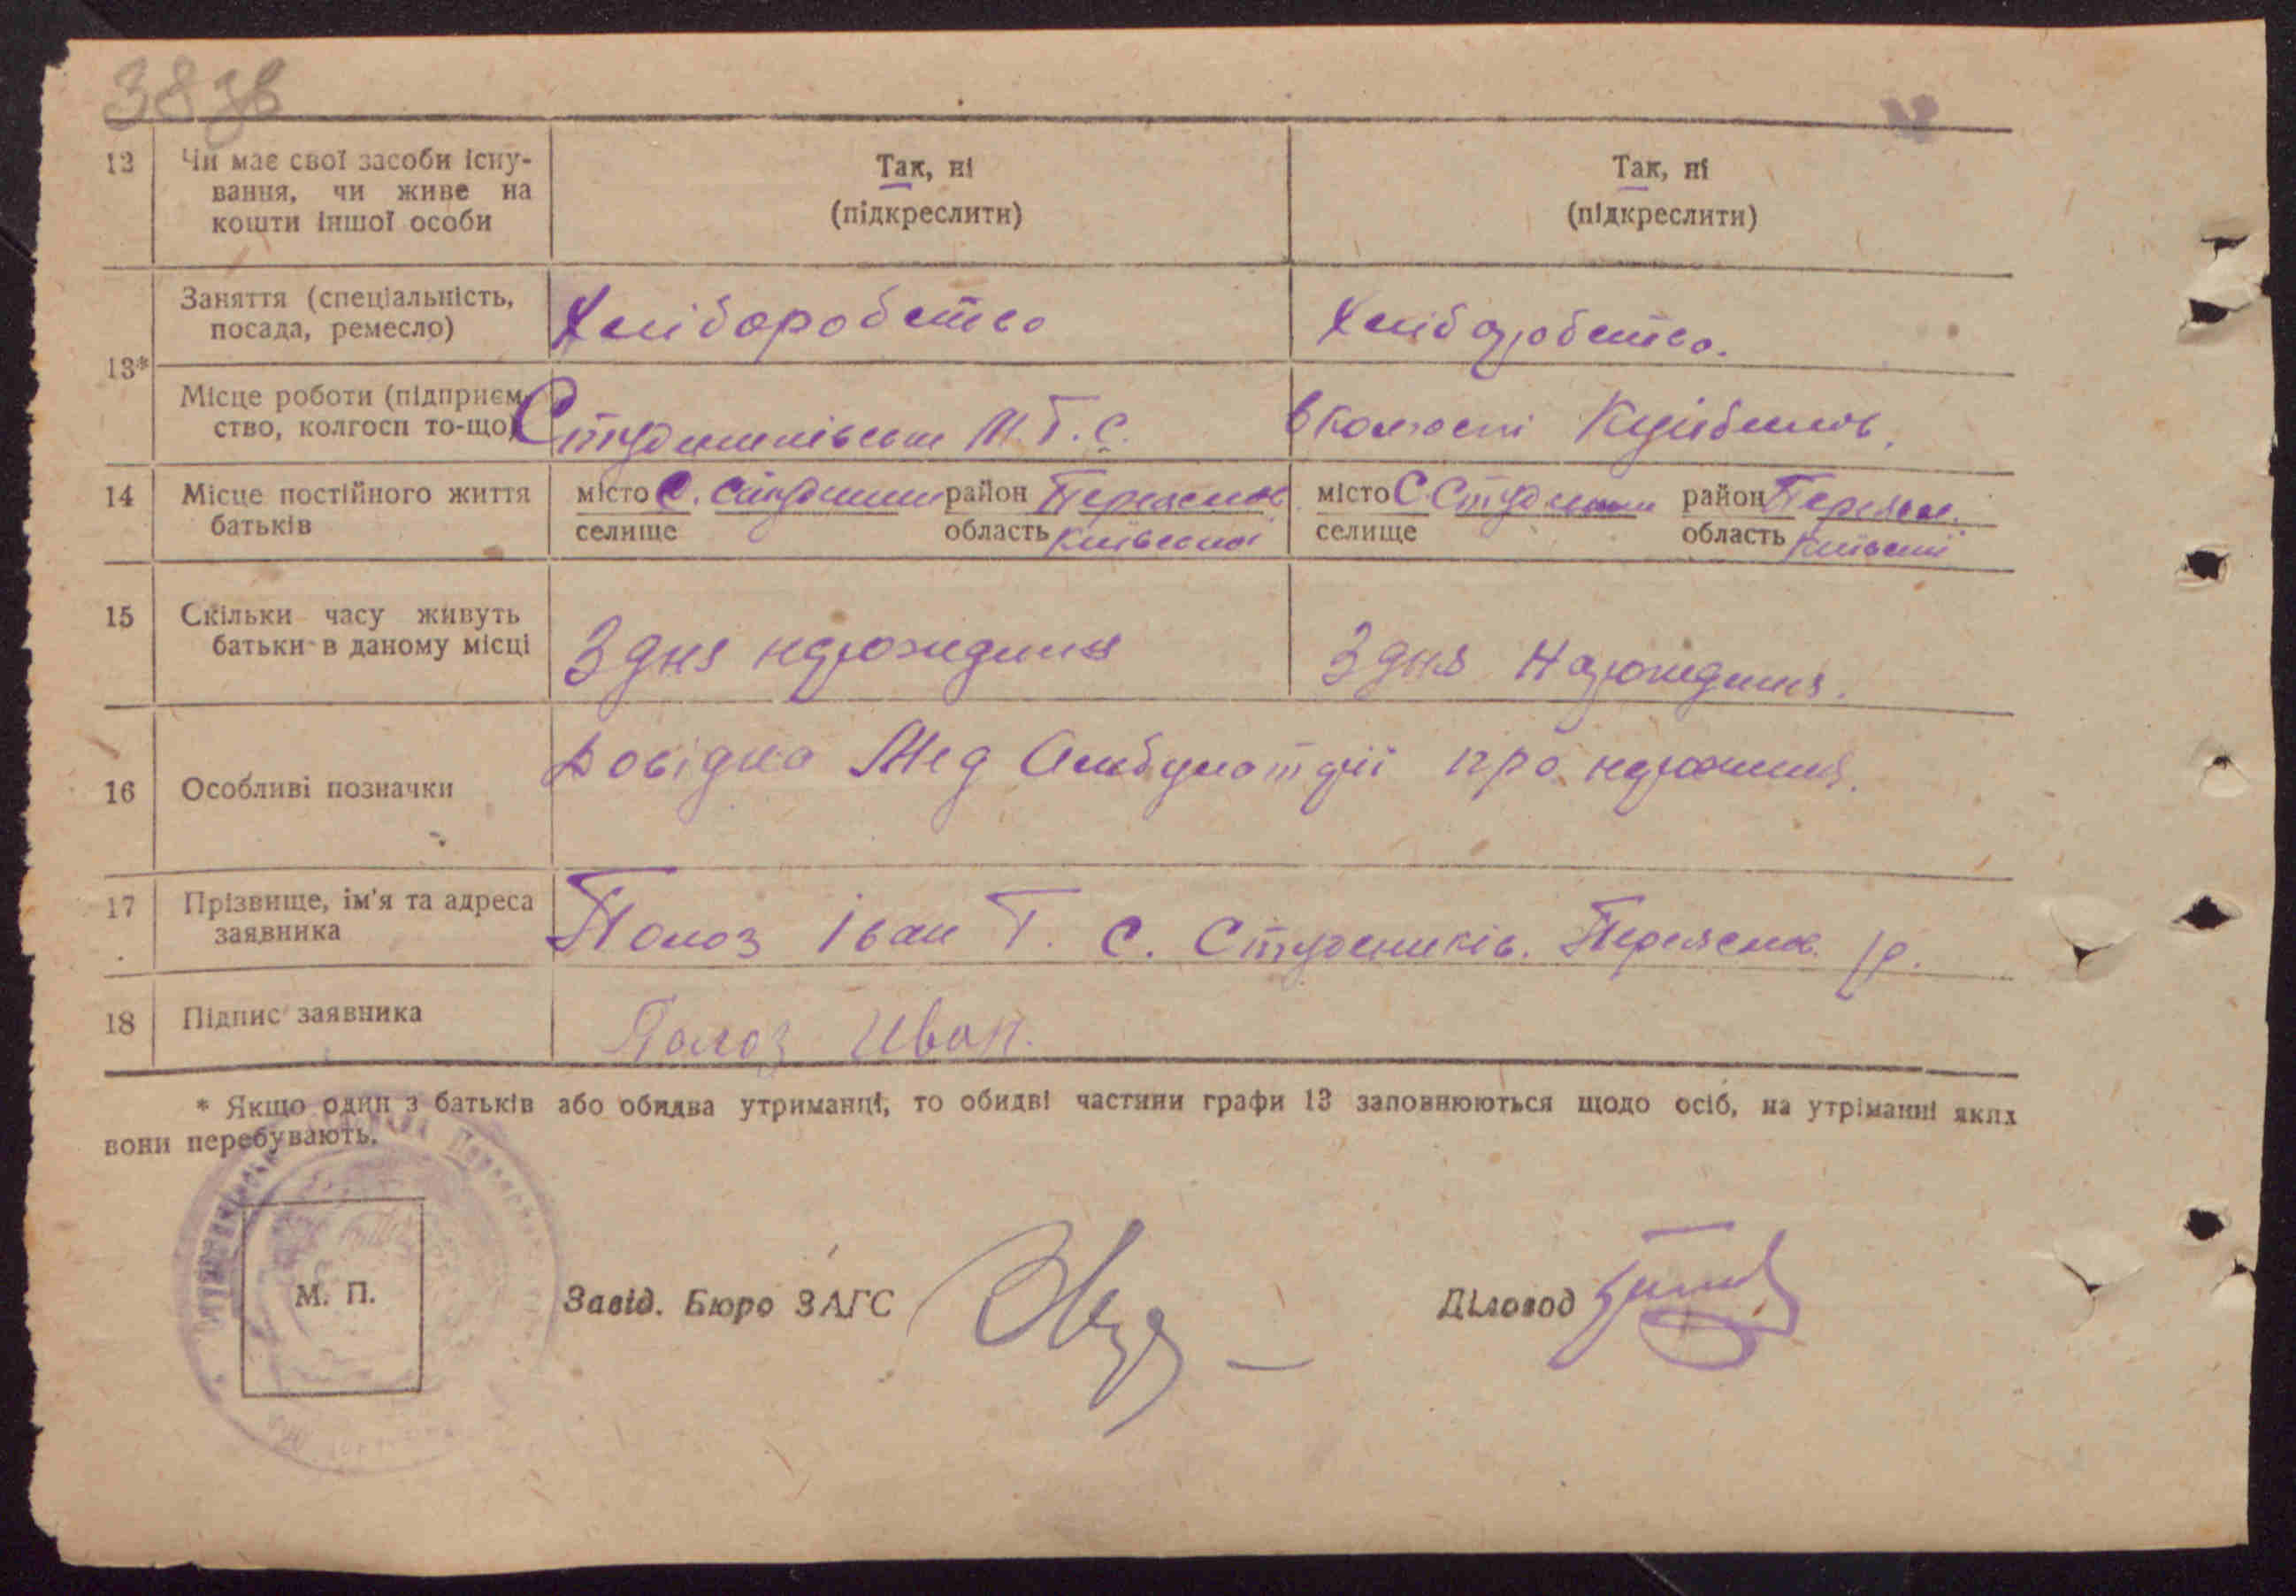 38 зв
12 Чи має свої засоби існу-
вання, чи живе на
кошти іншої особи
Так, ні
(підкреслити)
Так, ні
(підкреслити)
13*
Заняття (спеціальність,
посада, ремесло)
Хліборобство
Хліборобство.
Місце роботи (підприєм-
ство, колгосп то-що)
М.Т.С.
в колгоспі Куйбишев.
14 Місце постійного життя
батьків
місто с. район Переяслав
селище область Київської
місто С. район Переясл.
селище область Київської
15 Скільки часу живуть
батьки в даному місці
З дня народження
З дня народження.
16 Особливі позначки
Довідка Мед Амбулаторії про народження.
17 Прізвище, ім'я та адреса
заявника
Полоз Іван Т. с. Студеників. Переяслав. р.
18 Підпис заявника
Полоз Иван.
* Якщо один з батьків або обидва утриманці, то обидві частини графи 13 заповнюються щодо осіб, на утріманні яких
вони перебувають.
М. П.
Завід. Бюро ЗАГС
Діловод